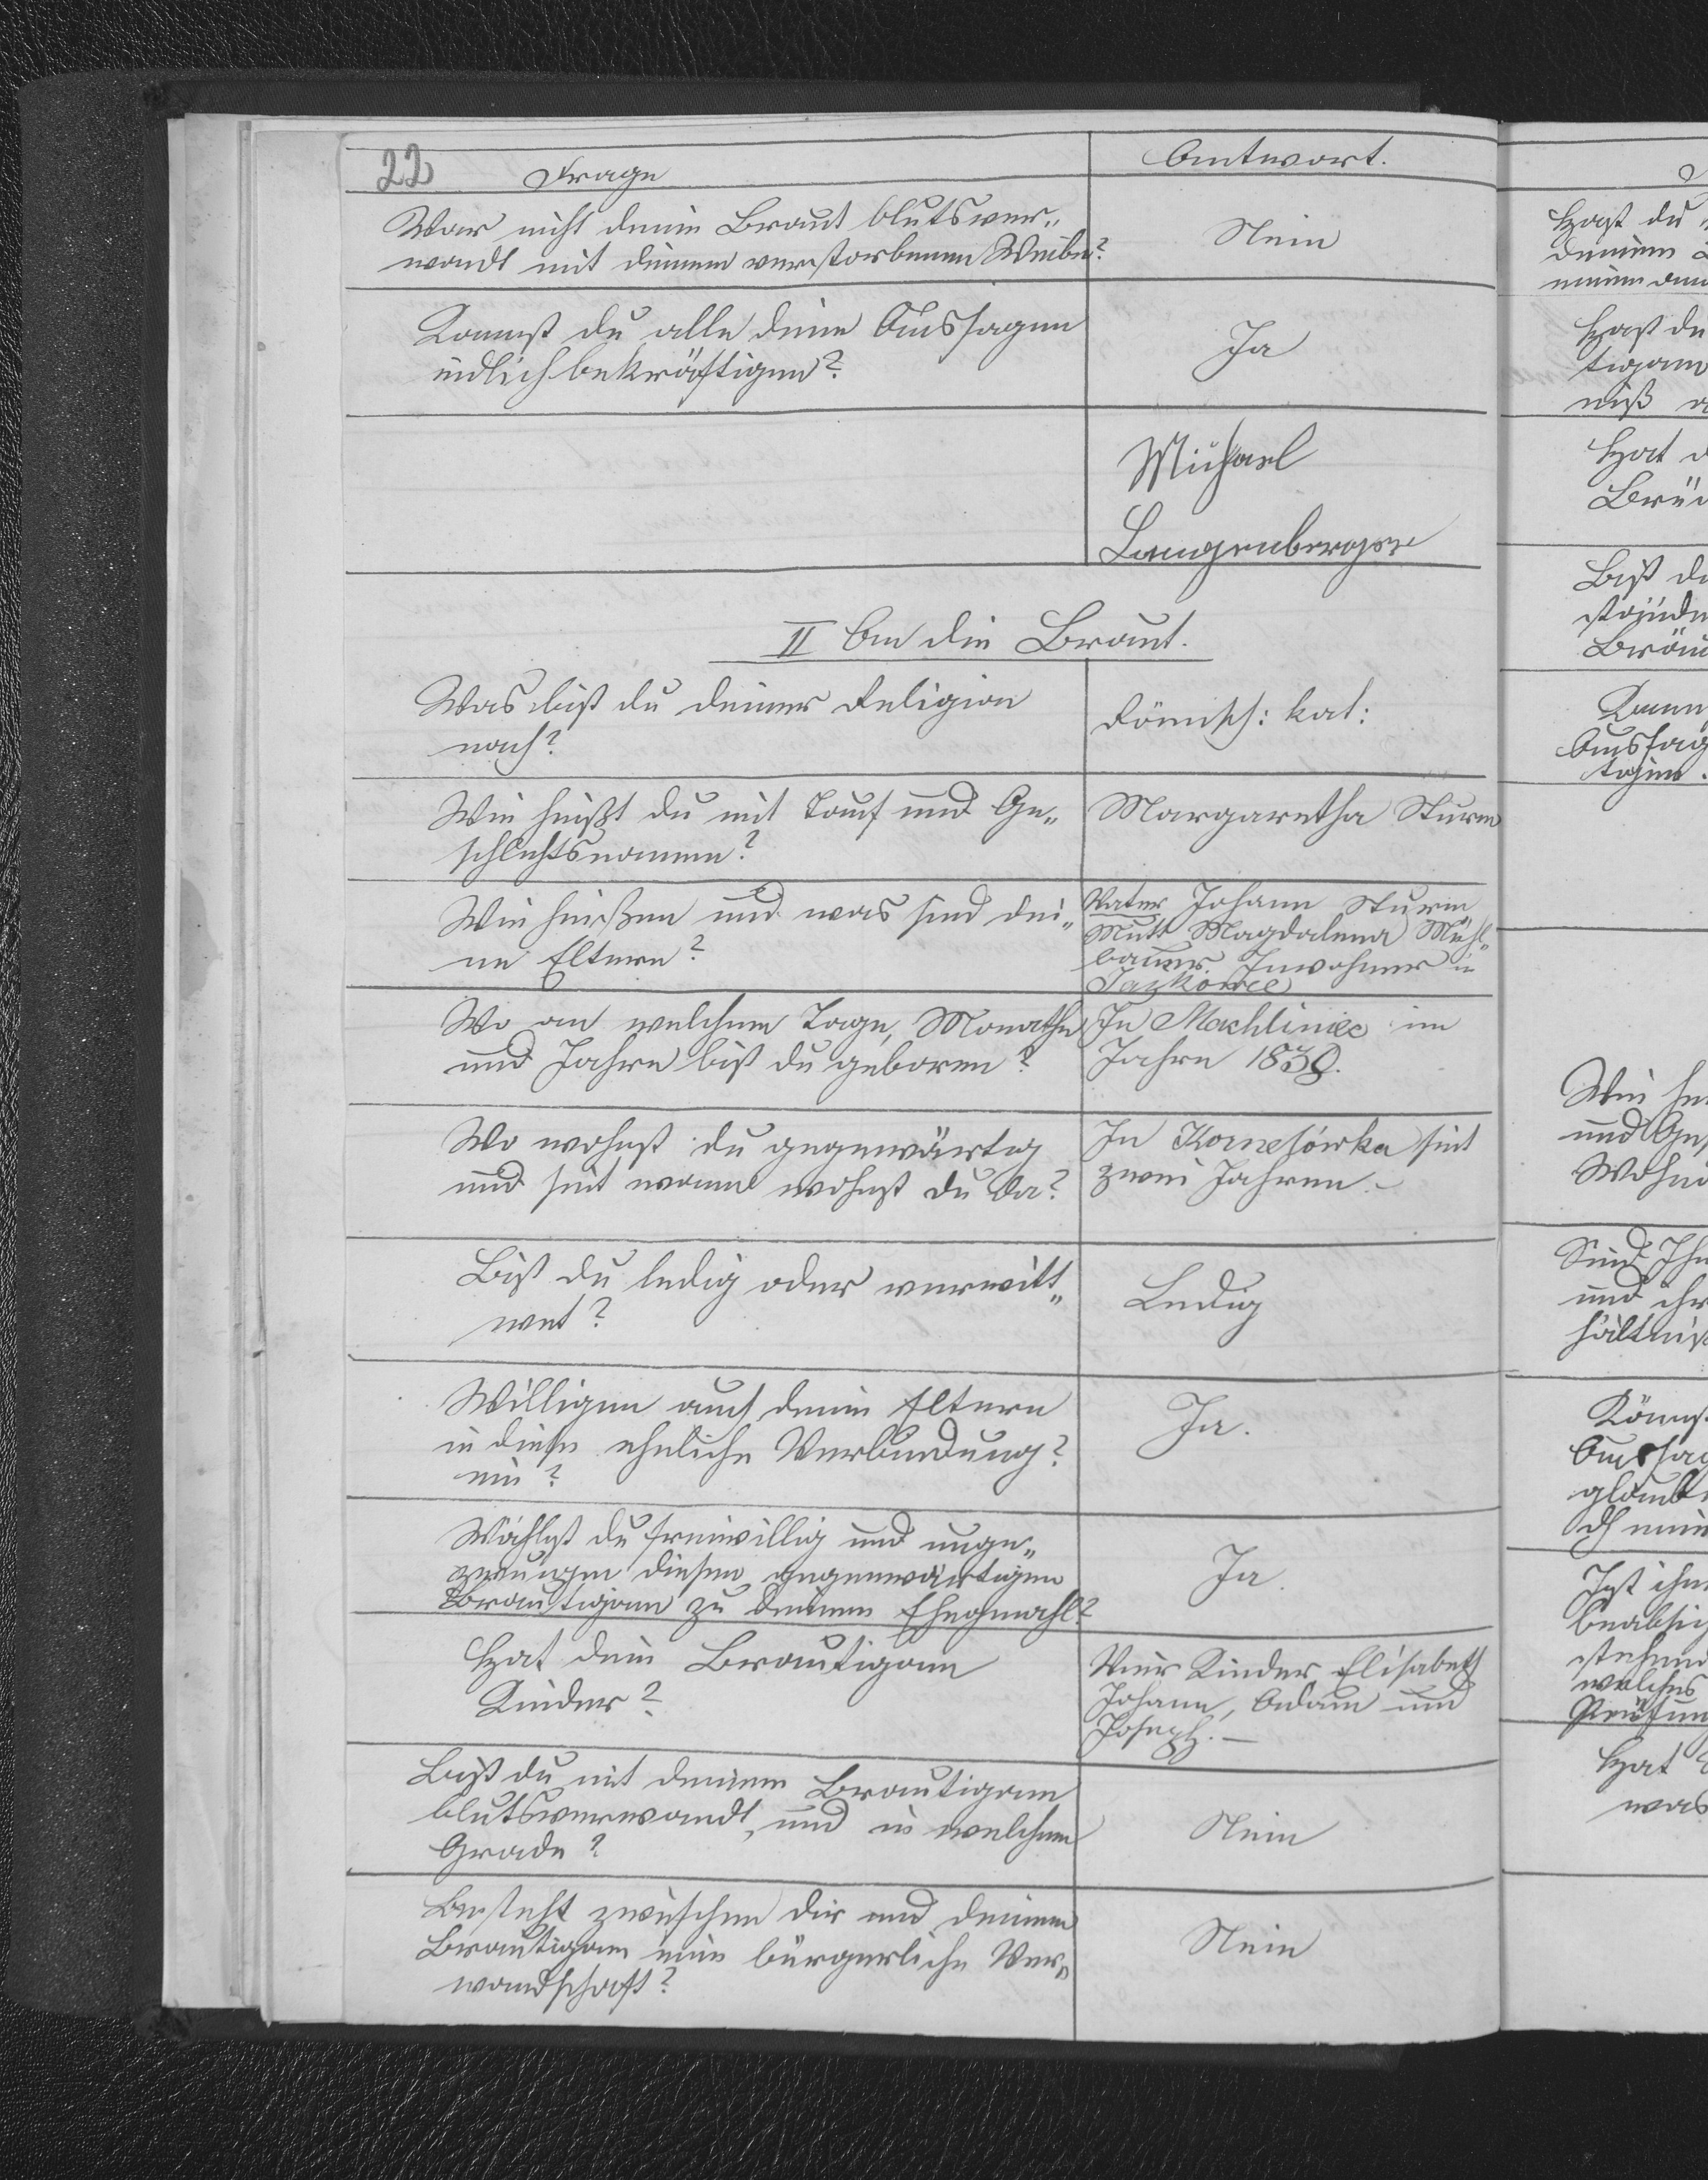 22 Frage Antwort.
War nicht deine Braut blutsver„
wandt mit deinem verstorbenen Weibe? Nein
Kannst du alle deine Aussagen
eidlich bekräftigen? Ja
Michael
Langenberger
II An die Braut.
Was bist du deiner Religion
nach? Römisch: kat:
Wie heißt du mit Tauf und Ge„
schlechtsnamen? Margaretha Sturm
Wie heißen und was sind dei„
ne Eltern?
Vater Johann Sturm
Mutt Magdalena Mühl„
bauer. Inwohner in
Jazkowce
Wo an welchem Tage, Monathe
und Jahre bist du geboren?
In Machliniec im
Jahre 1839.
Wo wohnst du gegenwärtig
und seit wann wohnst du da?
In Kornelówka seit
zwei Jahren.-
Bist du ledig oder verwitt„
wet? Ledig
Willigen auch deine Eltern
in diese eheliche Verbindung?
ein? Ja.
Wählst du freiwillig und unge„
zwungen diesen gegenwärtigen
Bräutigam zu deinem Ehegemahl? Ja.
Hat dein Bräutigam
Kinder?
Vier Kinder Elisabeth
Johann, Adam und
Joseph.-
Bist du mit deinem Bräutigam
blutsverwandt, und in welchem
Grade? Nein
Besteht zwischen dir und deinem
Bräutigam eine bürgerliche Ver„
wandschaft? Nein
Hast du
deinem
Hast du
tigam
niß
Hat
Bist du
Wie
und
Sind
und
hältniß
Ist
welches
Hat
was